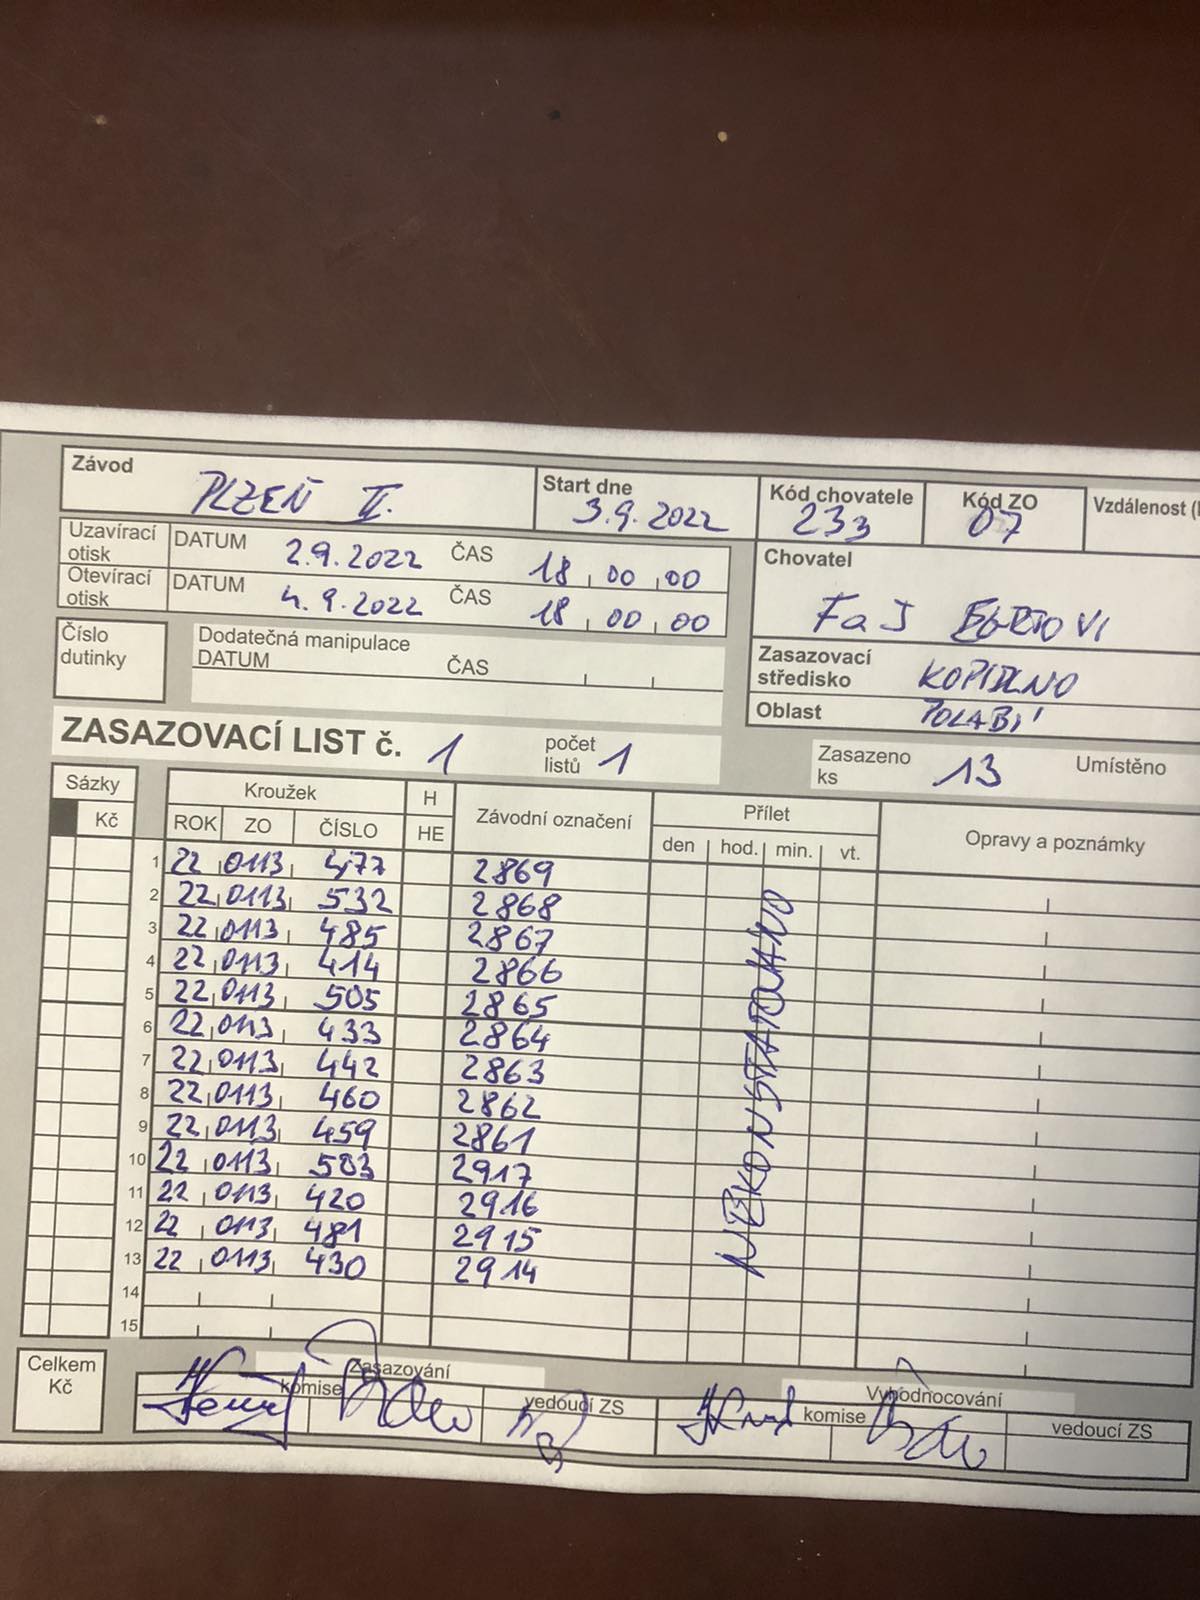 Závod PLZEŇ II. Start dne 3.9.2022 Kód chovatele 233 Kód ZO 07 Vzdálenost
Uzavírací otisk DATUM 2.9.2022 ČAS 18 00 00
Otevírací otisk DATUM 4.9.2022 ČAS 18 00 00
Chovatel
FaJ EGRTOVI
Číslo dutinky
Dodatečná manipulace
DATUM ČAS
Zasazovací středisko KOPIDLNO
Oblast POLABÍ
ZASAZOVACÍ LIST č. 1 počet listů 1
Zasazeno ks 13 Umístěno
Sázky Kroužek H Závodní označení Přílet Opravy a poznámky
Kč ROK ZO ČÍSLO HE den hod. min. vt.
1 22 0113 477 2869
2 22 0113 532 2868
3 22 0113 485 2867
4 22 0113 414 2866
5 22 0113 505 2865
6 22 0113 433 2864
7 22 0113 442 2863
8 22 0113 460 2862
9 22 0113 459 2861
10 22 0113 503 2917
11 22 0113 420 2916
12 22 0113 481 2915
13 22 0113 430 2914
14
15
NEKONSTATOVÁNO
Celkem Kč
Zasazování
komise vedoucí ZS
Vyhodnocování
komise vedoucí ZS